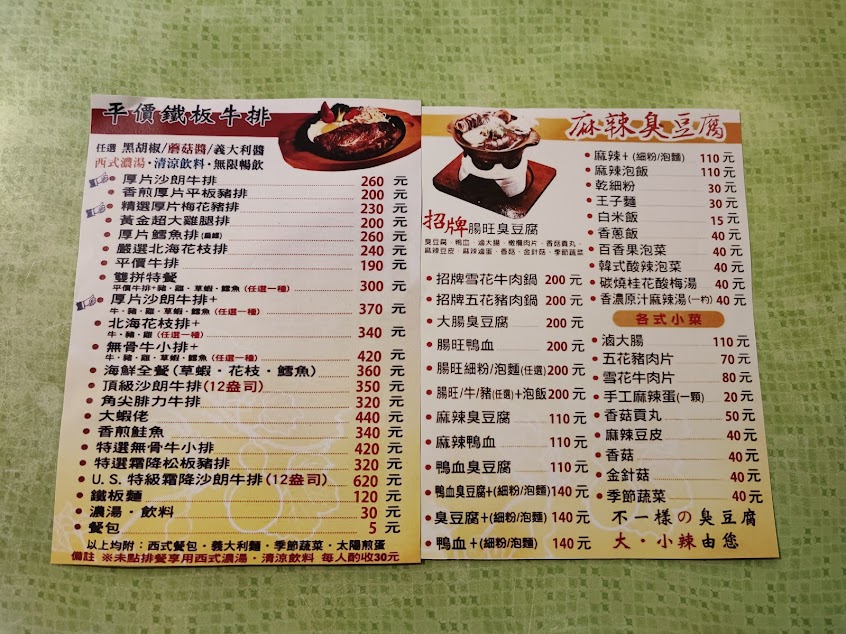 平價鐵板牛排
任選 黑胡椒/蘑菇醬/義大利醬
西式濃湯・清涼飲料・無限暢飲
厚片沙朗牛排 260 元
香煎厚片平板豬排 200 元
精選厚片梅花豬排 230 元
黃金超大雞腿排 200 元
厚片鱈魚排(扁鱈) 260 元
嚴選北海花枝排 240 元
平價牛排 190 元
雙拼特餐
平價牛排+豬・雞・草蝦・鱈魚(任選一種) 300 元
厚片沙朗牛排+
牛・豬・雞・草蝦・鱈魚(任選一種) 370 元
北海花枝排+
牛・豬・雞(任選一種) 340 元
無骨牛小排+
牛・豬・雞・草蝦・鱈魚(任選一種) 420 元
海鮮全餐(草蝦・花枝・鱈魚) 360 元
頂級沙朗牛排(12盎司) 350 元
角尖腓力牛排 320 元
大蝦佬 440 元
香煎鮭魚 340 元
特選無骨牛小排 420 元
特選霜降松板豬排 320 元
U.S.特級霜降沙朗牛排(12盎司) 620 元
鐵板麵 120 元
濃湯・飲料 30 元
餐包 5 元
以上均附：西式餐包・義大利麵・季節蔬菜・太陽煎蛋
備註 ※未點排餐享用西式濃湯・清涼飲料 每人酌收30元
麻辣臭豆腐
招牌腸旺臭豆腐
臭豆腐・鴨血・滷大腸・燉爛肉片・香菇貢丸・
麻辣豆皮・麻辣滷蛋・香菇・金針菇・季節蔬菜
招牌雪花牛肉鍋 200 元
招牌五花豬肉鍋 200 元
大腸臭豆腐 200 元
腸旺鴨血 200 元
腸旺細粉/泡麵(任選) 200 元
腸旺/牛/豬(任選)+泡飯 200 元
麻辣臭豆腐 110 元
麻辣鴨血 110 元
鴨血臭豆腐 110 元
鴨血臭豆腐+(細粉/泡麵) 140 元
臭豆腐+(細粉/泡麵) 140 元
鴨血+(細粉/泡麵) 140 元
麻辣+(細粉/泡麵) 110 元
麻辣泡飯 110 元
乾細粉 30 元
王子麵 30 元
白米飯 15 元
香蔥飯 40 元
百香果泡菜 40 元
韓式酸辣泡菜 40 元
碳燒桂花酸梅湯 40 元
香濃原汁麻辣湯(一杓) 40 元
各式小菜
滷大腸 110 元
五花豬肉片 70 元
雪花牛肉片 80 元
手工麻辣蛋(一顆) 20 元
香菇貢丸 50 元
麻辣豆皮 40 元
香菇 40 元
金針菇 40 元
季節蔬菜 40 元
不一樣の臭豆腐
大・小辣由您